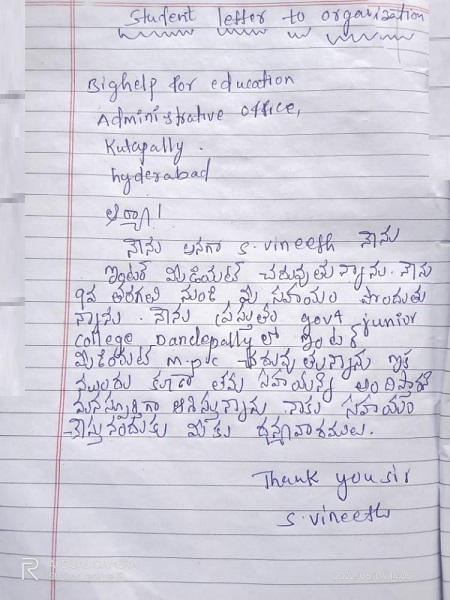 Student letter to organization
Bighelp for education
Administrative office,
Kukapally.
hyderabad
ఆర్యా!
నేను అనగా S.vineeth నేను
ఇంటర్ మీడియట్ చదువుతున్నాను. నేను
9వ తరగతి నుండి మీ సహాయం పొందుతు
న్నాను. నేను ప్రస్తుతం govt junior
college Dandepally లో ఇంటర్
మీడియట్ m.p.c చదువుతున్నాను ఇక
ముందు కూడా తమ సహాయాన్ని అందిస్తారని
మనస్ఫూర్తిగా ఆశిస్తున్నాను నాకు సహాయం
చేస్తున్నందుకు మీకు ధన్యవాదములు.
Thank you sir
S.vineeth